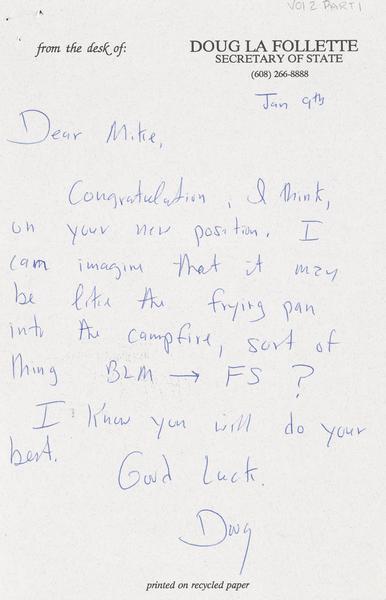 VOL 2 PART 1
from the desk of:
DOUG LA FOLLETTE
SECRETARY OF STATE
(608) 266-8888
Jan 9th
Dear Mike,
Congratulation, I think,
on your new position. I
can imagine that it may
be like the frying pan
into the campfire, sort of
thing BLM → FS ?
I know you will do your
best.
Good Luck.
Doug
printed on recycled paper